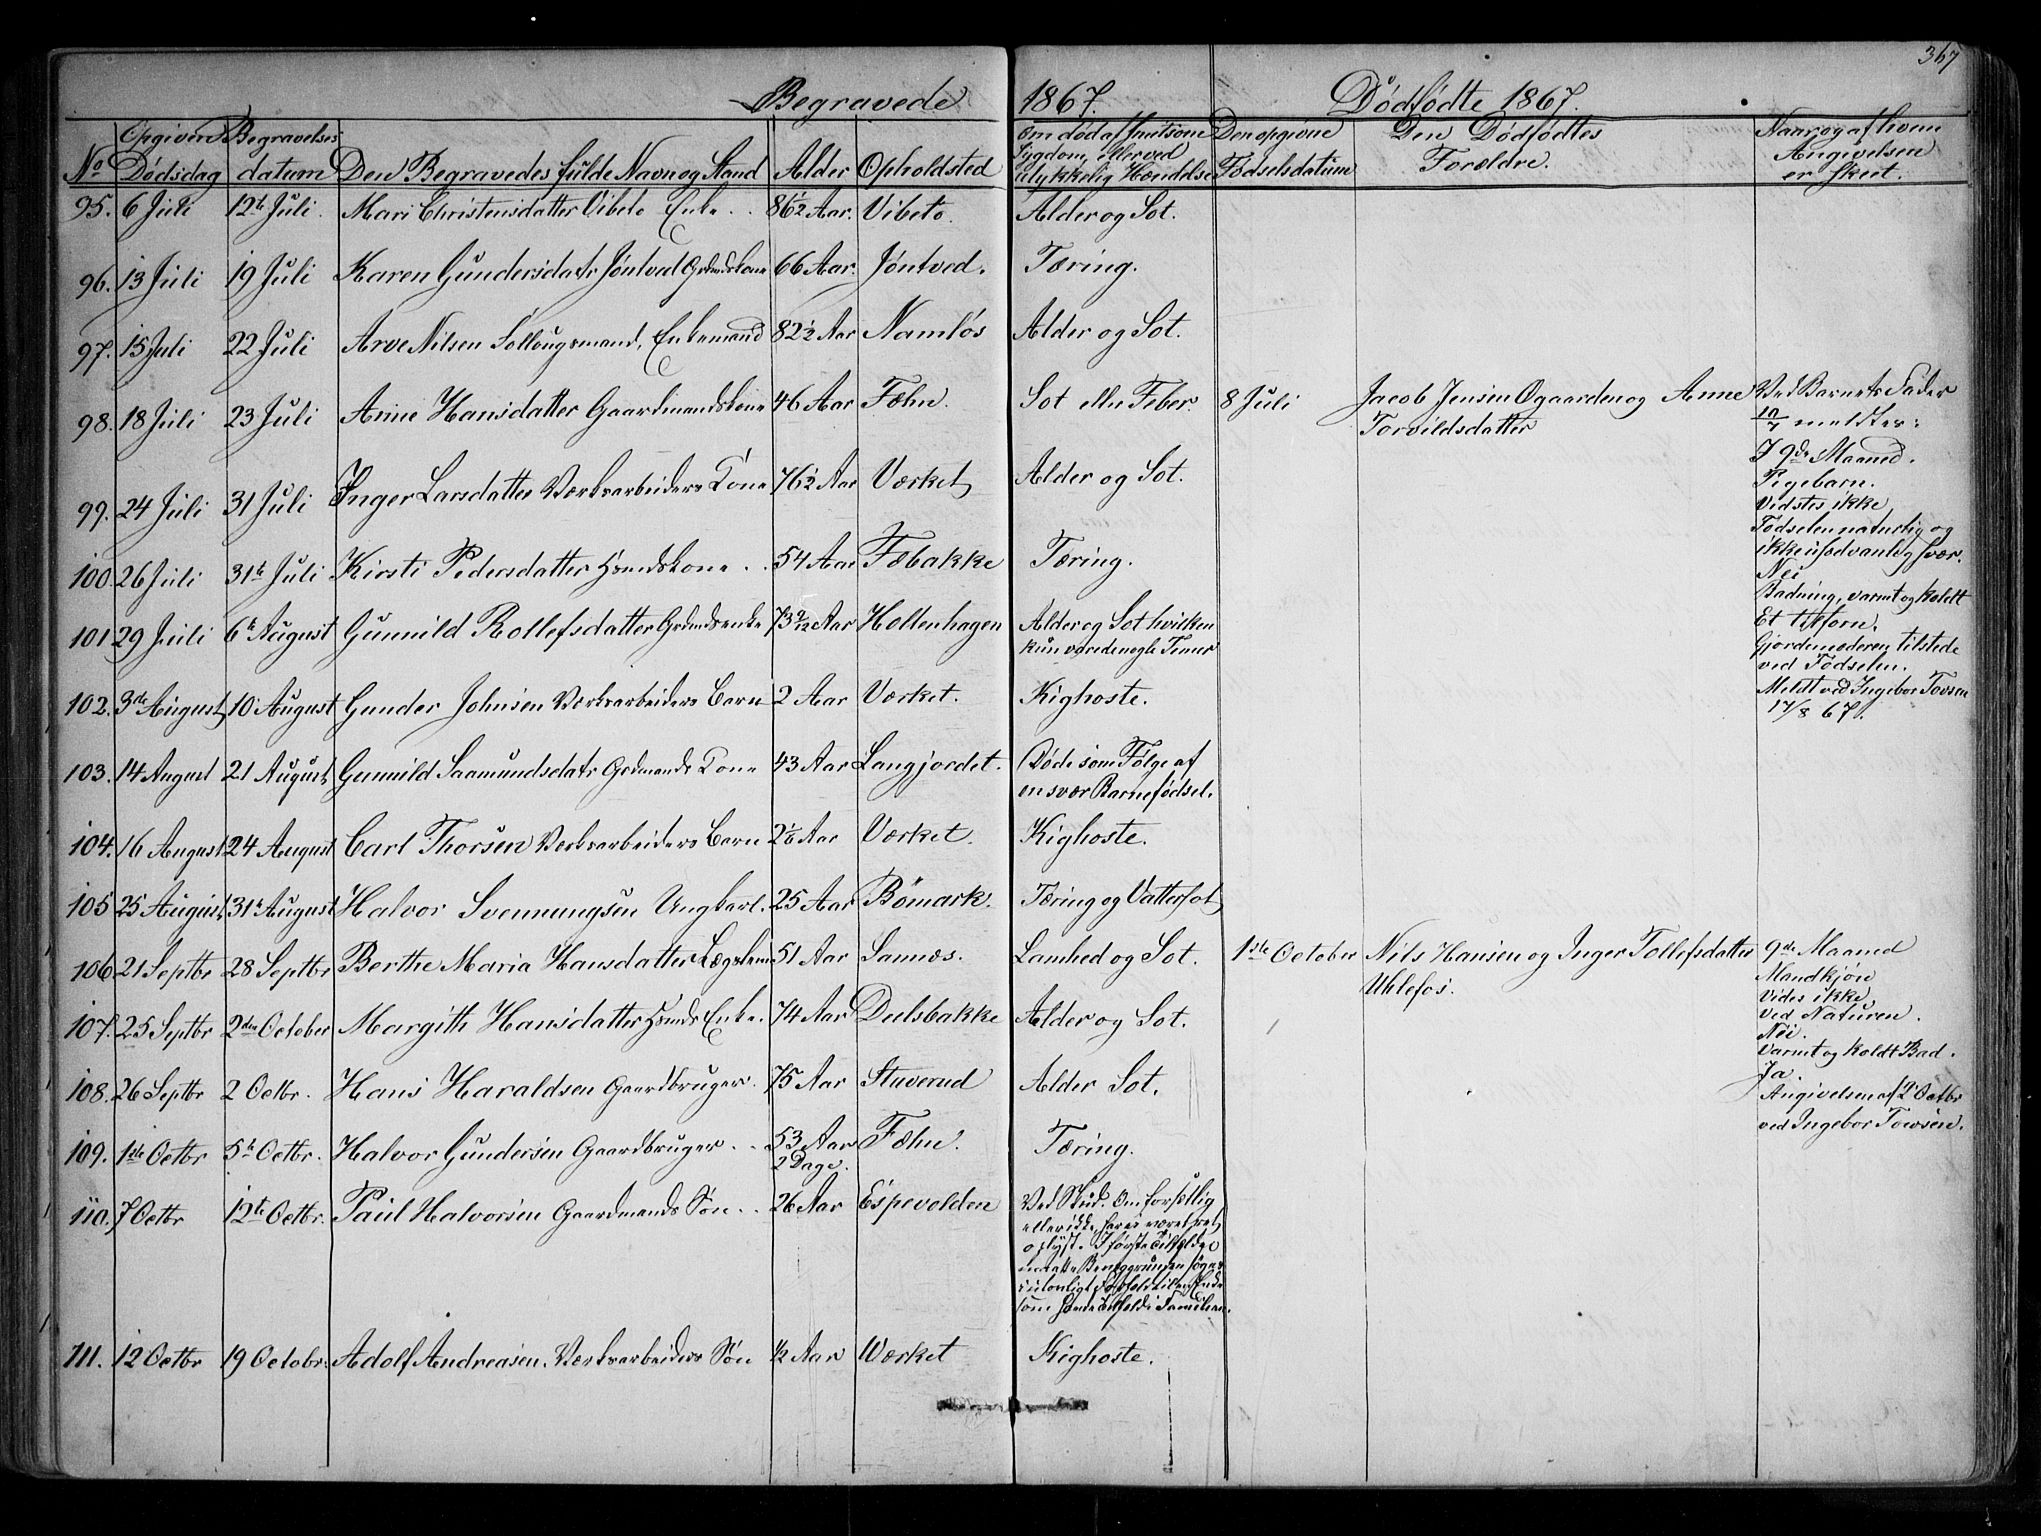 367
Begravede 1867. Dødfødte 1867.
No Opgiven Dødsdag Begravelses datum Den Begravedes fulde Navn og Stand Alder Opholdsted Om død af smitsom Sygdom eller ved ulykkelig Hændelse Den opgivne Fødselsdatum Den Dødfødtes Forældre. Naar og af hvem Angivelsen er skeet.
95. 6 Juli 12te Juli. Mari Christensdatter Vibeto Enke 86½ Aar. Vibeto. Alder og Sot.
96. 13 Juli 19 Juli Karen Gundersdatr Jøntved Grdmdskone 66 Aar. Jøntved. Tæring.
97. 15 Juli 22 Juli Arve Nilsen Sollougsmand, Enkemand 82½ Aar Namløs Alder og Sot.
98. 18 Juli 23 Juli Anne Hansdatter Gaardmandskone 46 Aar Fæhn. Sot eller Feber. 8 Juli Jacob Jensen Ogaarden og Anne Ved Barnets Fader
Torvildsdatter
meldtes:
I 9de Maaned.
Pigebarn.
99. 24 Juli 31 Juli Inger Larsdatter Værksarbeiders Kone 76½ Aar Værket Alder og Sot.
Vidstes ikke
Fødselen naturlig og
ikke usædvanlig svær.
100. 26 Juli 31te Juli Kirsti Pedersdatter Hsmdskone 54 Aar Fæbakke Tæring.
Nei
Badning, varmt og koldt
101 29 Juli 6te August Gunnild Rollefsdatter Grdmdsenke 73 9/12 Aar Hollenhagen Alder og Sot hvilken
kun varede nogle Timer
Et
Gjordemoderen tilstede
ved Fødselen.
Meldt ved Ingebor Tovsen
17/8 67.
102. 3die August 10 August Gunder Johnsen Værksarbeiders Barn 2 Aar Værket. Kighoste.
103. 14 August 21 August Gunnild Saamundsdatr Grdmands Kone 43 Aar Langjordet. Døde som Følge af
en svær Barnefødsel.
104. 16 August 24 August Carl Thorsen Værksarbeiders Barn 2 1/6 Aar Værket. Kighoste.
105 25 August 31te August Halvor Svennungsen Ungkarl. 25 Aar Bömark. Tæring og Vattersot
106 21 Septbr 28 Septbr Berthe Maria Hansdatter Lægslem 51 Aar Sannæs. Lamhed og Sot. 1ste October Nils Hansen og Inger Tollefsdatter 9de Maaned
Uhlefos.
Mandkjøn
Vides ikke
Ved Naturen.
Nei.
107. 25 Septbr 2den October Margith Hansdatter Hsmds Enke. 74 Aar Deelsbakke Alder og Sot.
Varmt og koldt Bad.
Ja.
108. 26 Septbr 2 Octbr. Hans Haraldsen Gaardbruger. 75 Aar Stuverud Alder Sot.
Angivelsen af 2 Octbr
ved Ingebor Towsen.
109. 1ste Octbr 5te Octbr. Halvor Gundersen Gaardbruger 53 Aar 2 Dage. Fæhn. Tæring.
110. 7 Octbr 12te Octbr. Paul Halvorsen Gaardmands Søn 26 Aar Espevolden Ved Skud. Om forsætlig
eller ikke, har ei været ret
oplyst. I første Tilfælde
maatte Bevæggrunden søges
111. 12 Octbr 19 Octobr. Adolf Andreasen. Værksarbeiders Søn ½ Aar Wærket Kighoste.